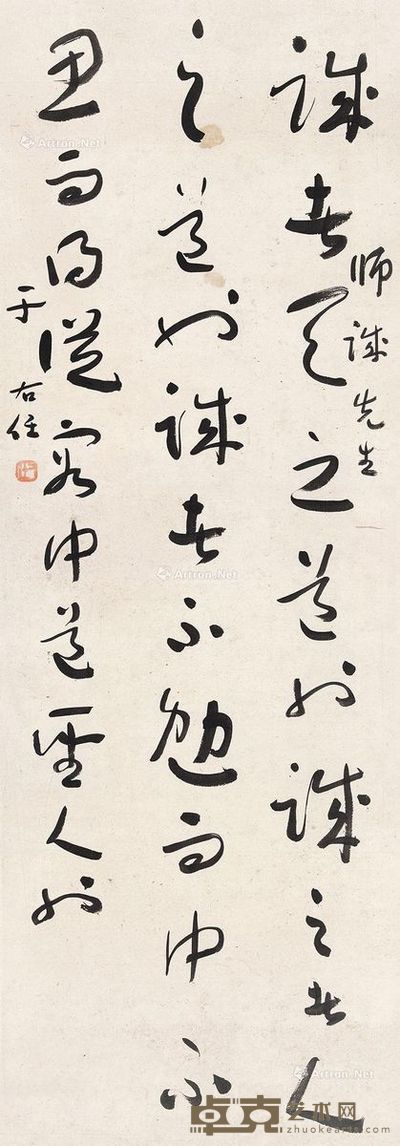 誠者天之道也誠之者人
之道也誠者不勉而中不
思而得從容中道聖人也
師誠先生
于右任
Artron.Net
Artron.Net
Artron.Net
Artron.Net
卓克艺术网
zhuokearts.com